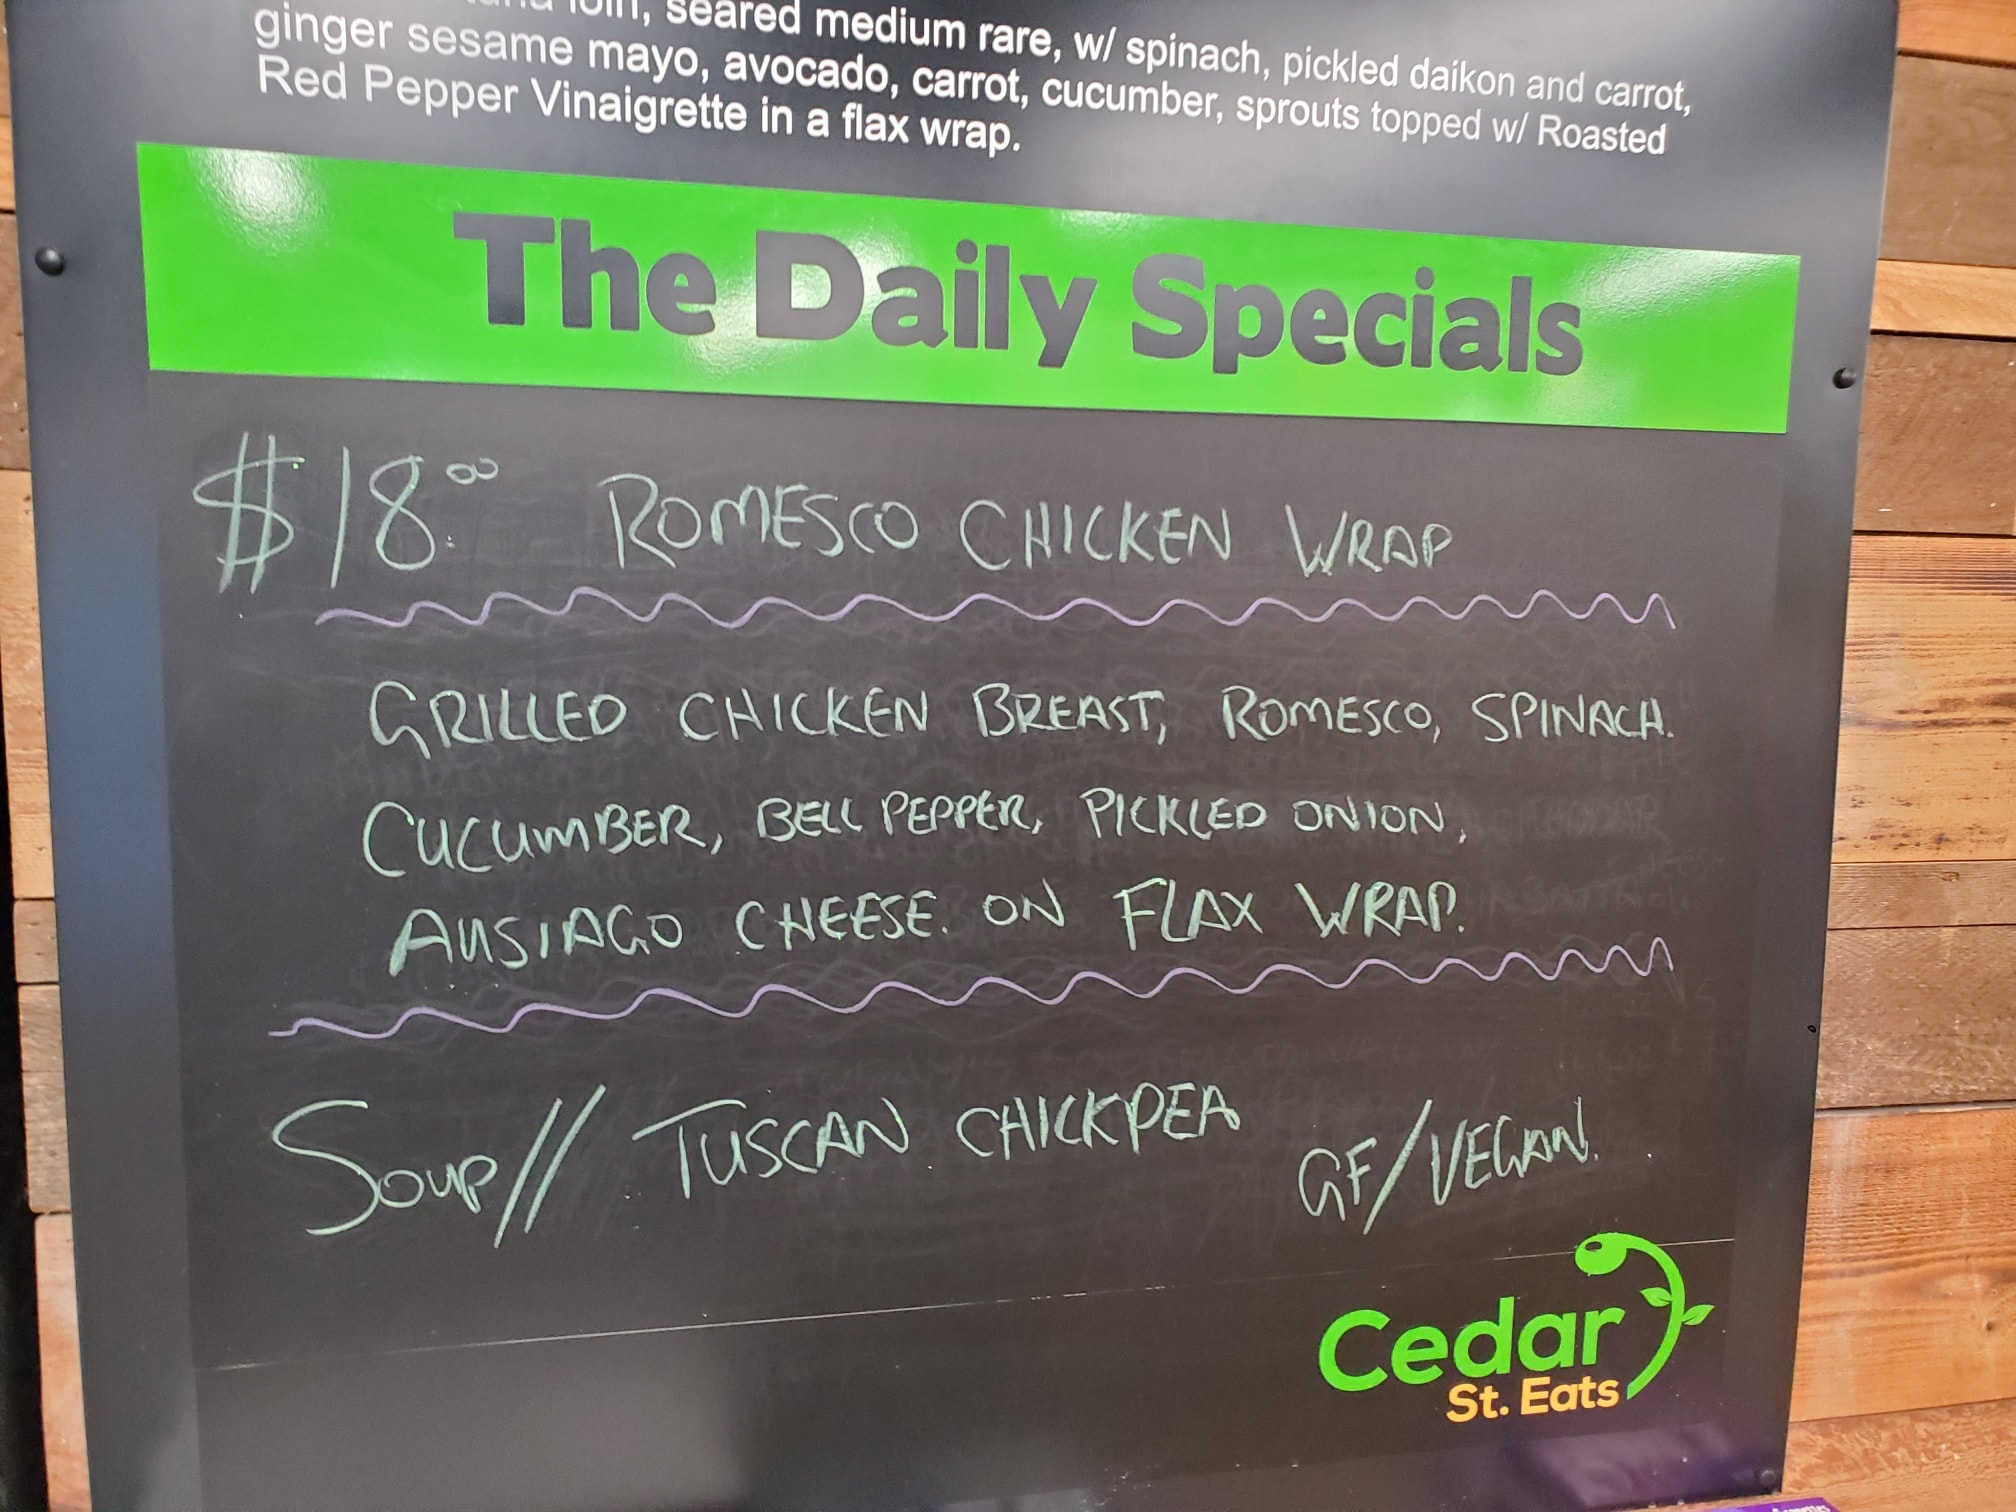 loin, seared medium rare, w/ spinach, pickled daikon and carrot,
ginger sesame mayo, avocado, carrot, cucumber, sprouts topped w/ Roasted
Red Pepper Vinaigrette in a flax wrap.
The Daily Specials
$18.00 ROMESCO CHICKEN WRAP
GRILLED CHICKEN BREAST, ROMESCO, SPINACH.
CUCUMBER, BELL PEPPER, PICKLED ONION,
AUSIAGO CHEESE. ON FLAX WRAP.
SOUP// TUSCAN CHICKPEA GF/VEGAN.
Cedar
St. Eats